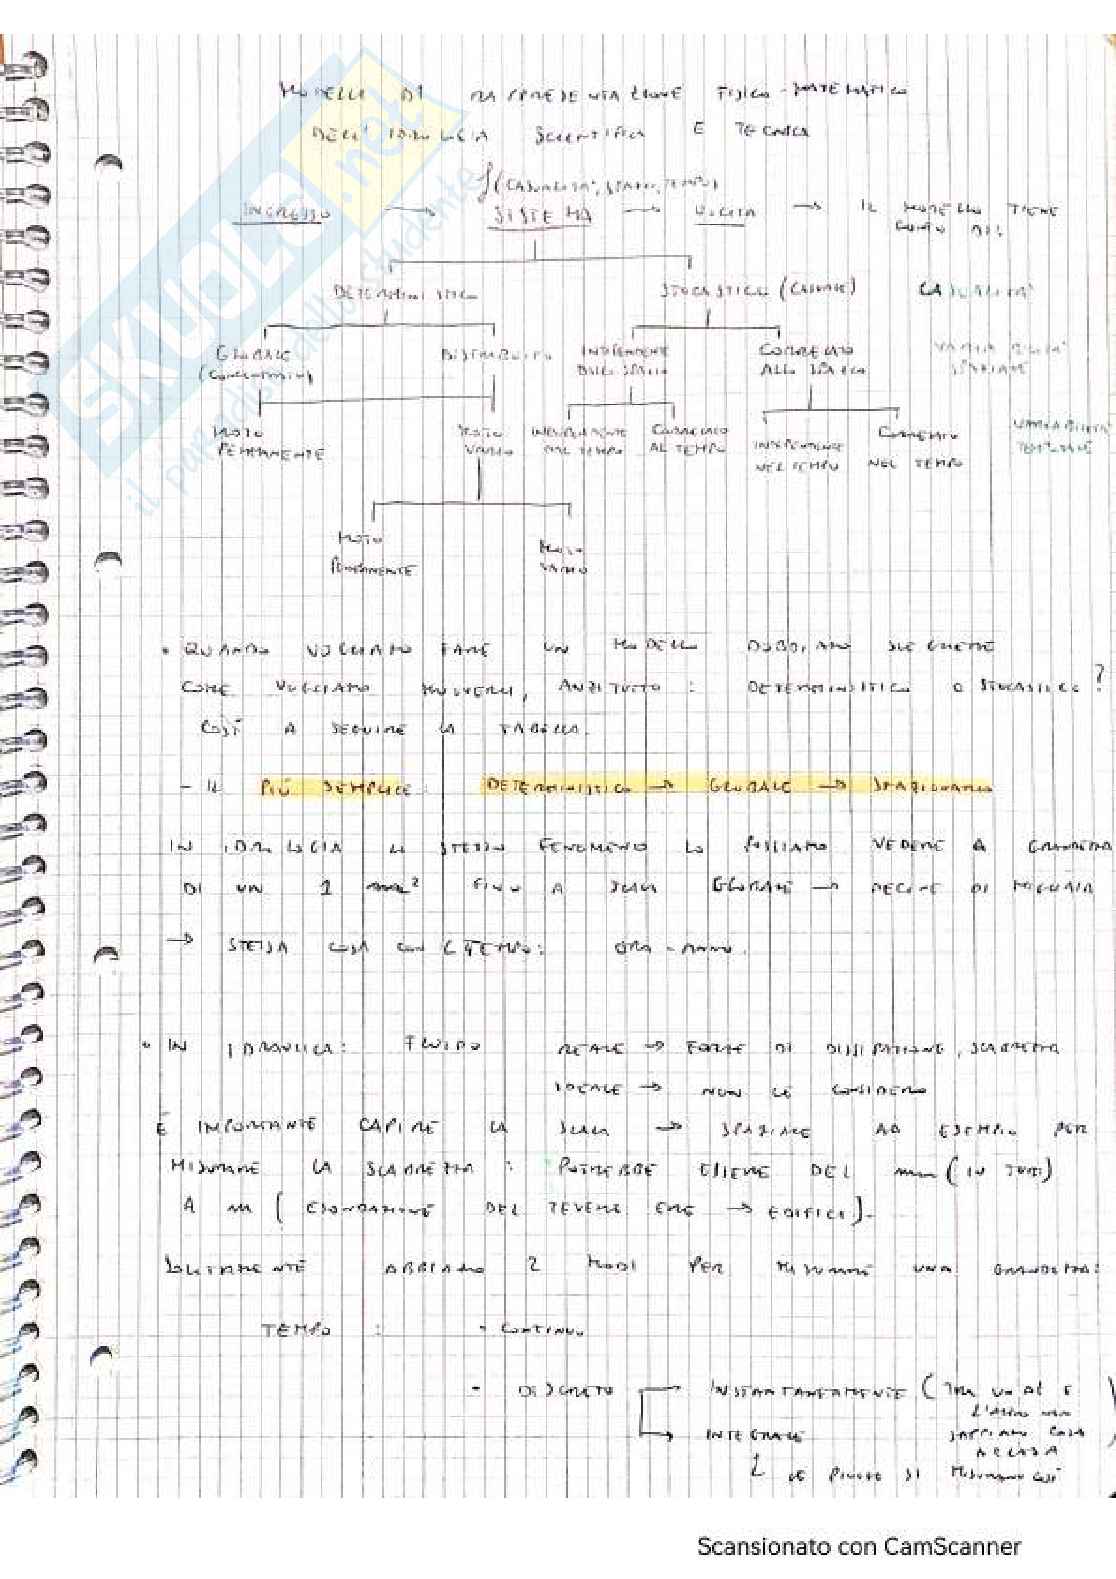 MODELLI DI RAPPRESENTAZIONE FISICO-MATEMATICO
DELL'IDROLOGIA SCIENTIFICA E TECNICA
f(CASUALITÀ, SPAZIO, TEMPO)
INGRESSO → SISTEMA → USCITA → IL MODELLO TIENE
CONTO DI:
DETERMINISTICO STOCASTICO (CASUALE) CASUALITÀ
GLOBALE DISTRIBUITO INDIPENDENTE CORRELATO VARIABILITÀ
(CONCENTRATO) DALLO SPAZIO ALLO SPAZIO SPAZIALE
MOTO MOTO INDIPENDENTE CORRELATO INDIPENDENTE CORRELATO VARIABILITÀ
PERMANENTE VARIO DAL TEMPO AL TEMPO NEL TEMPO NEL TEMPO TEMPORALE
MOTO MOTO
PERMANENTE VARIO
• QUANDO VOGLIAMO FARE UN MODELLO DOBBIAMO SCEGLIERE
COME VOGLIAMO MUOVERCI, ANZITUTTO: DETERMINISTICO O STOCASTICO?
COSÌ A SEGUIRE LA TABELLA.
- IL PIÙ SEMPLICE: DETERMINISTICO → GLOBALE → STAZIONARIO
IN IDROLOGIA LO STESSO FENOMENO LO POSSIAMO VEDERE A GRANDEZZA
DI UN 1 mm² FINO A SCALA GLOBALE → DECINE DI MIGLIAIA
→ STESSA COSA CON IL TEMPO: ORA - ANNO.
• IN IDRAULICA: FLUIDO REALE → FORZE DI DISSIPAZIONE, SCABREZZA
IDEALE → NON LE CONSIDERO
È IMPORTANTE CAPIRE LA SCALA → SPAZIALE AD ESEMPIO PER
MISURARE LA SCABREZZA: POTREBBE ESSERE DEL mm (IN TUBI)
A m (ESONDAZIONE DEL TEVERE → EDIFICI).
SOLITAMENTE ABBIAMO 2 MODI PER MISURARE UNA GRANDEZZA:
TEMPO: - CONTINUO
- DISCRETO → INSTANTANEAMENTE (TRA UN Δt E
L'ALTRO NON
→ INTEGRALE SAPPIAMO COSA
ACCADA)
LE PIOGGE SI MISURANO COSÌ
SKUOLA.net
il paradiso dello studente
Scansionato con CamScanner